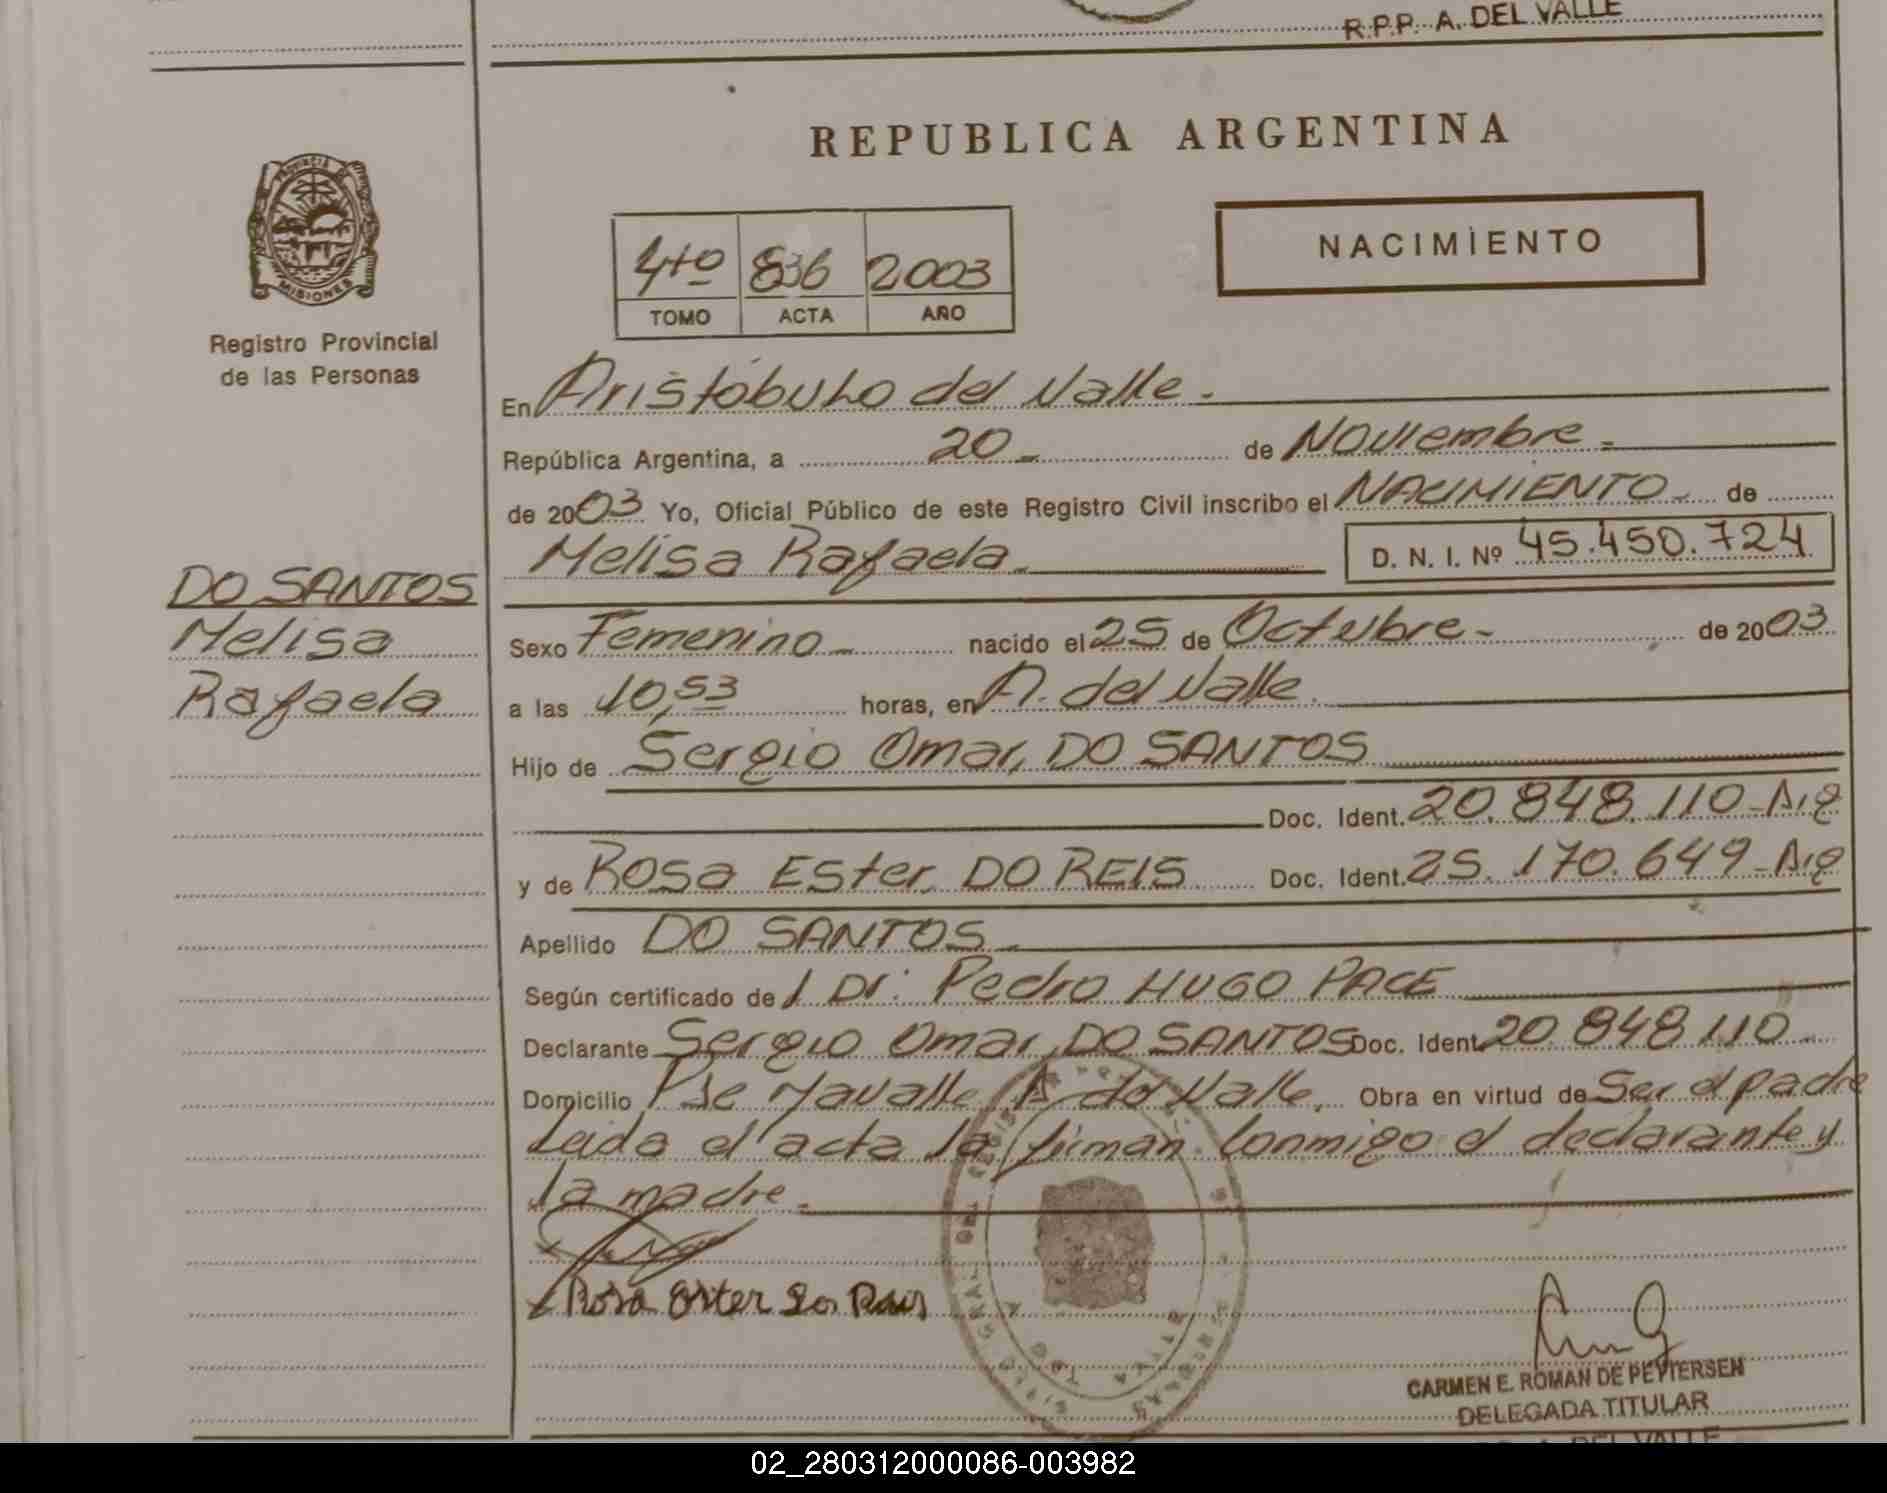 R.P.P. A. DEL VALLE
REPUBLICA ARGENTINA
PROVINCIA DE
MISIONES
Registro Provincial
de las Personas
NACIMIENTO
4to 836 2003
TOMO ACTA AÑO
En Aristóbulo del Valle.
República Argentina, a 20 de Noviembre
de 2003 Yo, Oficial Público de este Registro Civil inscribo el NACIMIENTO de
Melisa Rafaela D. N. I. Nº 45.450.724
DO SANTOS
Melisa
Rafaela
Sexo Femenino nacido el 25 de Octubre de 2003
a las 10,53 horas, en A. del Valle.
Hijo de Sergio Omar, DO SANTOS
Doc. Ident. 20.848.110-Arg
y de Rosa Ester, DO REIS Doc. Ident. 25.170.649-Arg
Apellido DO SANTOS
Según certificado de l Dr. Pedro HUGO PACE
Declarante Sergio Omar, DO SANTOS Doc. Ident. 20.848.110
Domicilio A. del Valle, Obra en virtud de Ser el padre
Leida el acta la firman conmigo el declarante y
la madre
Rosa Ester Dos Reis
CARMEN E. ROMAN DE PETTERSEN
DELEGADA TITULAR
R.P.P. A. DEL VALLE
02_280312000086-003982